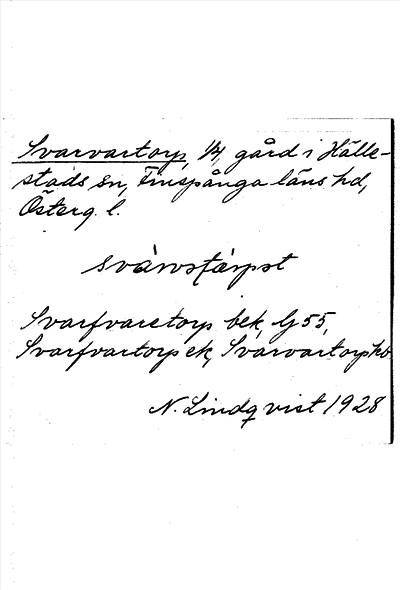 Svarvartorp, 1/4, gård i Hälle-
stads sn, Finspånga läns hd,
Österg. l.
Svarfvaretorp bek, G 55,
Svarfvartorp ek, Svarvartorp hb
N. Lindqvist 1928